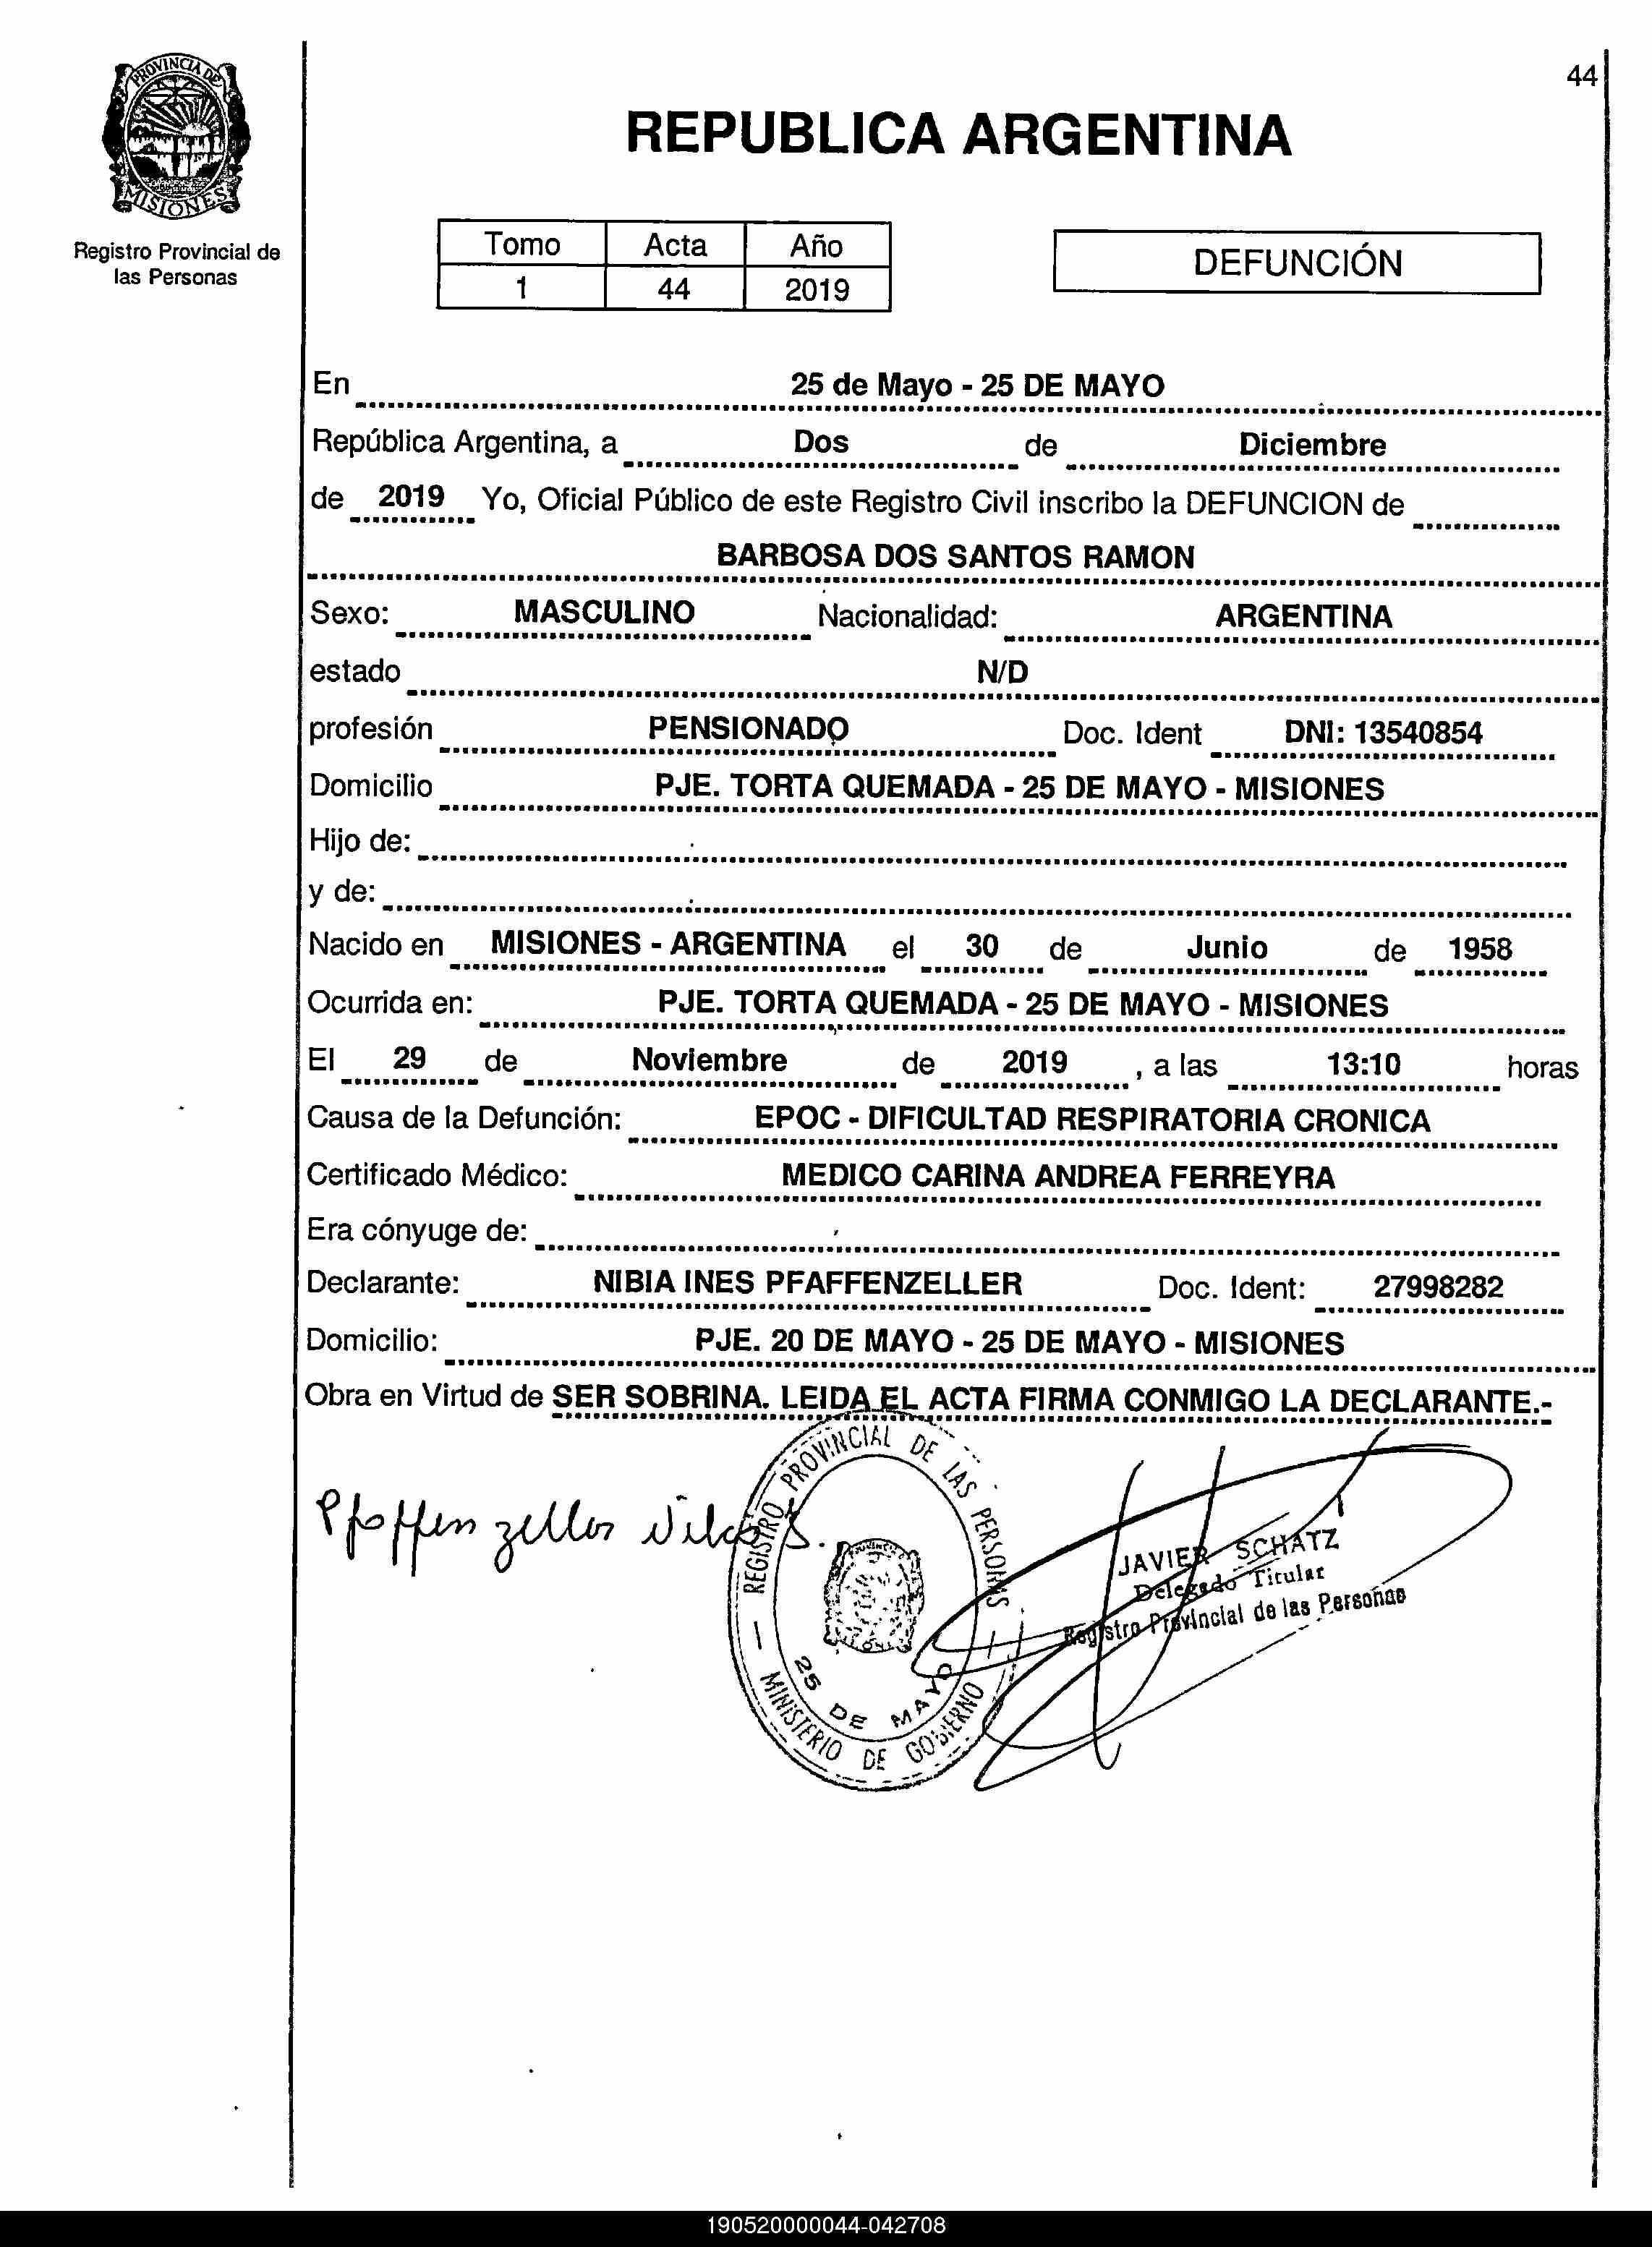 44
PROVINCIA DE
MISIONES
Registro Provincial de
las Personas
REPUBLICA ARGENTINA
Tomo Acta Año
1 44 2019
DEFUNCIÓN
En 25 de Mayo - 25 DE MAYO
República Argentina, a Dos de Diciembre
de 2019 Yo, Oficial Público de este Registro Civil inscribo la DEFUNCION de
BARBOSA DOS SANTOS RAMON
Sexo: MASCULINO Nacionalidad: ARGENTINA
estado N/D
profesión PENSIONADO Doc. Ident DNI: 13540854
Domicilio PJE. TORTA QUEMADA - 25 DE MAYO - MISIONES
Hijo de:
y de:
Nacido en MISIONES - ARGENTINA el 30 de Junio de 1958
Ocurrida en: PJE. TORTA QUEMADA - 25 DE MAYO - MISIONES
El 29 de Noviembre de 2019 , a las 13:10 horas
Causa de la Defunción: EPOC - DIFICULTAD RESPIRATORIA CRONICA
Certificado Médico: MEDICO CARINA ANDREA FERREYRA
Era cónyuge de:
Declarante: NIBIA INES PFAFFENZELLER Doc. Ident: 27998282
Domicilio: PJE. 20 DE MAYO - 25 DE MAYO - MISIONES
Obra en Virtud de SER SOBRINA. LEIDA EL ACTA FIRMA CONMIGO LA DECLARANTE.-
Pfaffenzeller
REGISTRO PROVINCIAL DE LAS PERSONAS
25 DE MAYO
MINISTERIO DE GOBIERNO
JAVIER SCHATZ
Delegado Titular
Registro Provincial de las Personas
190520000044-042708